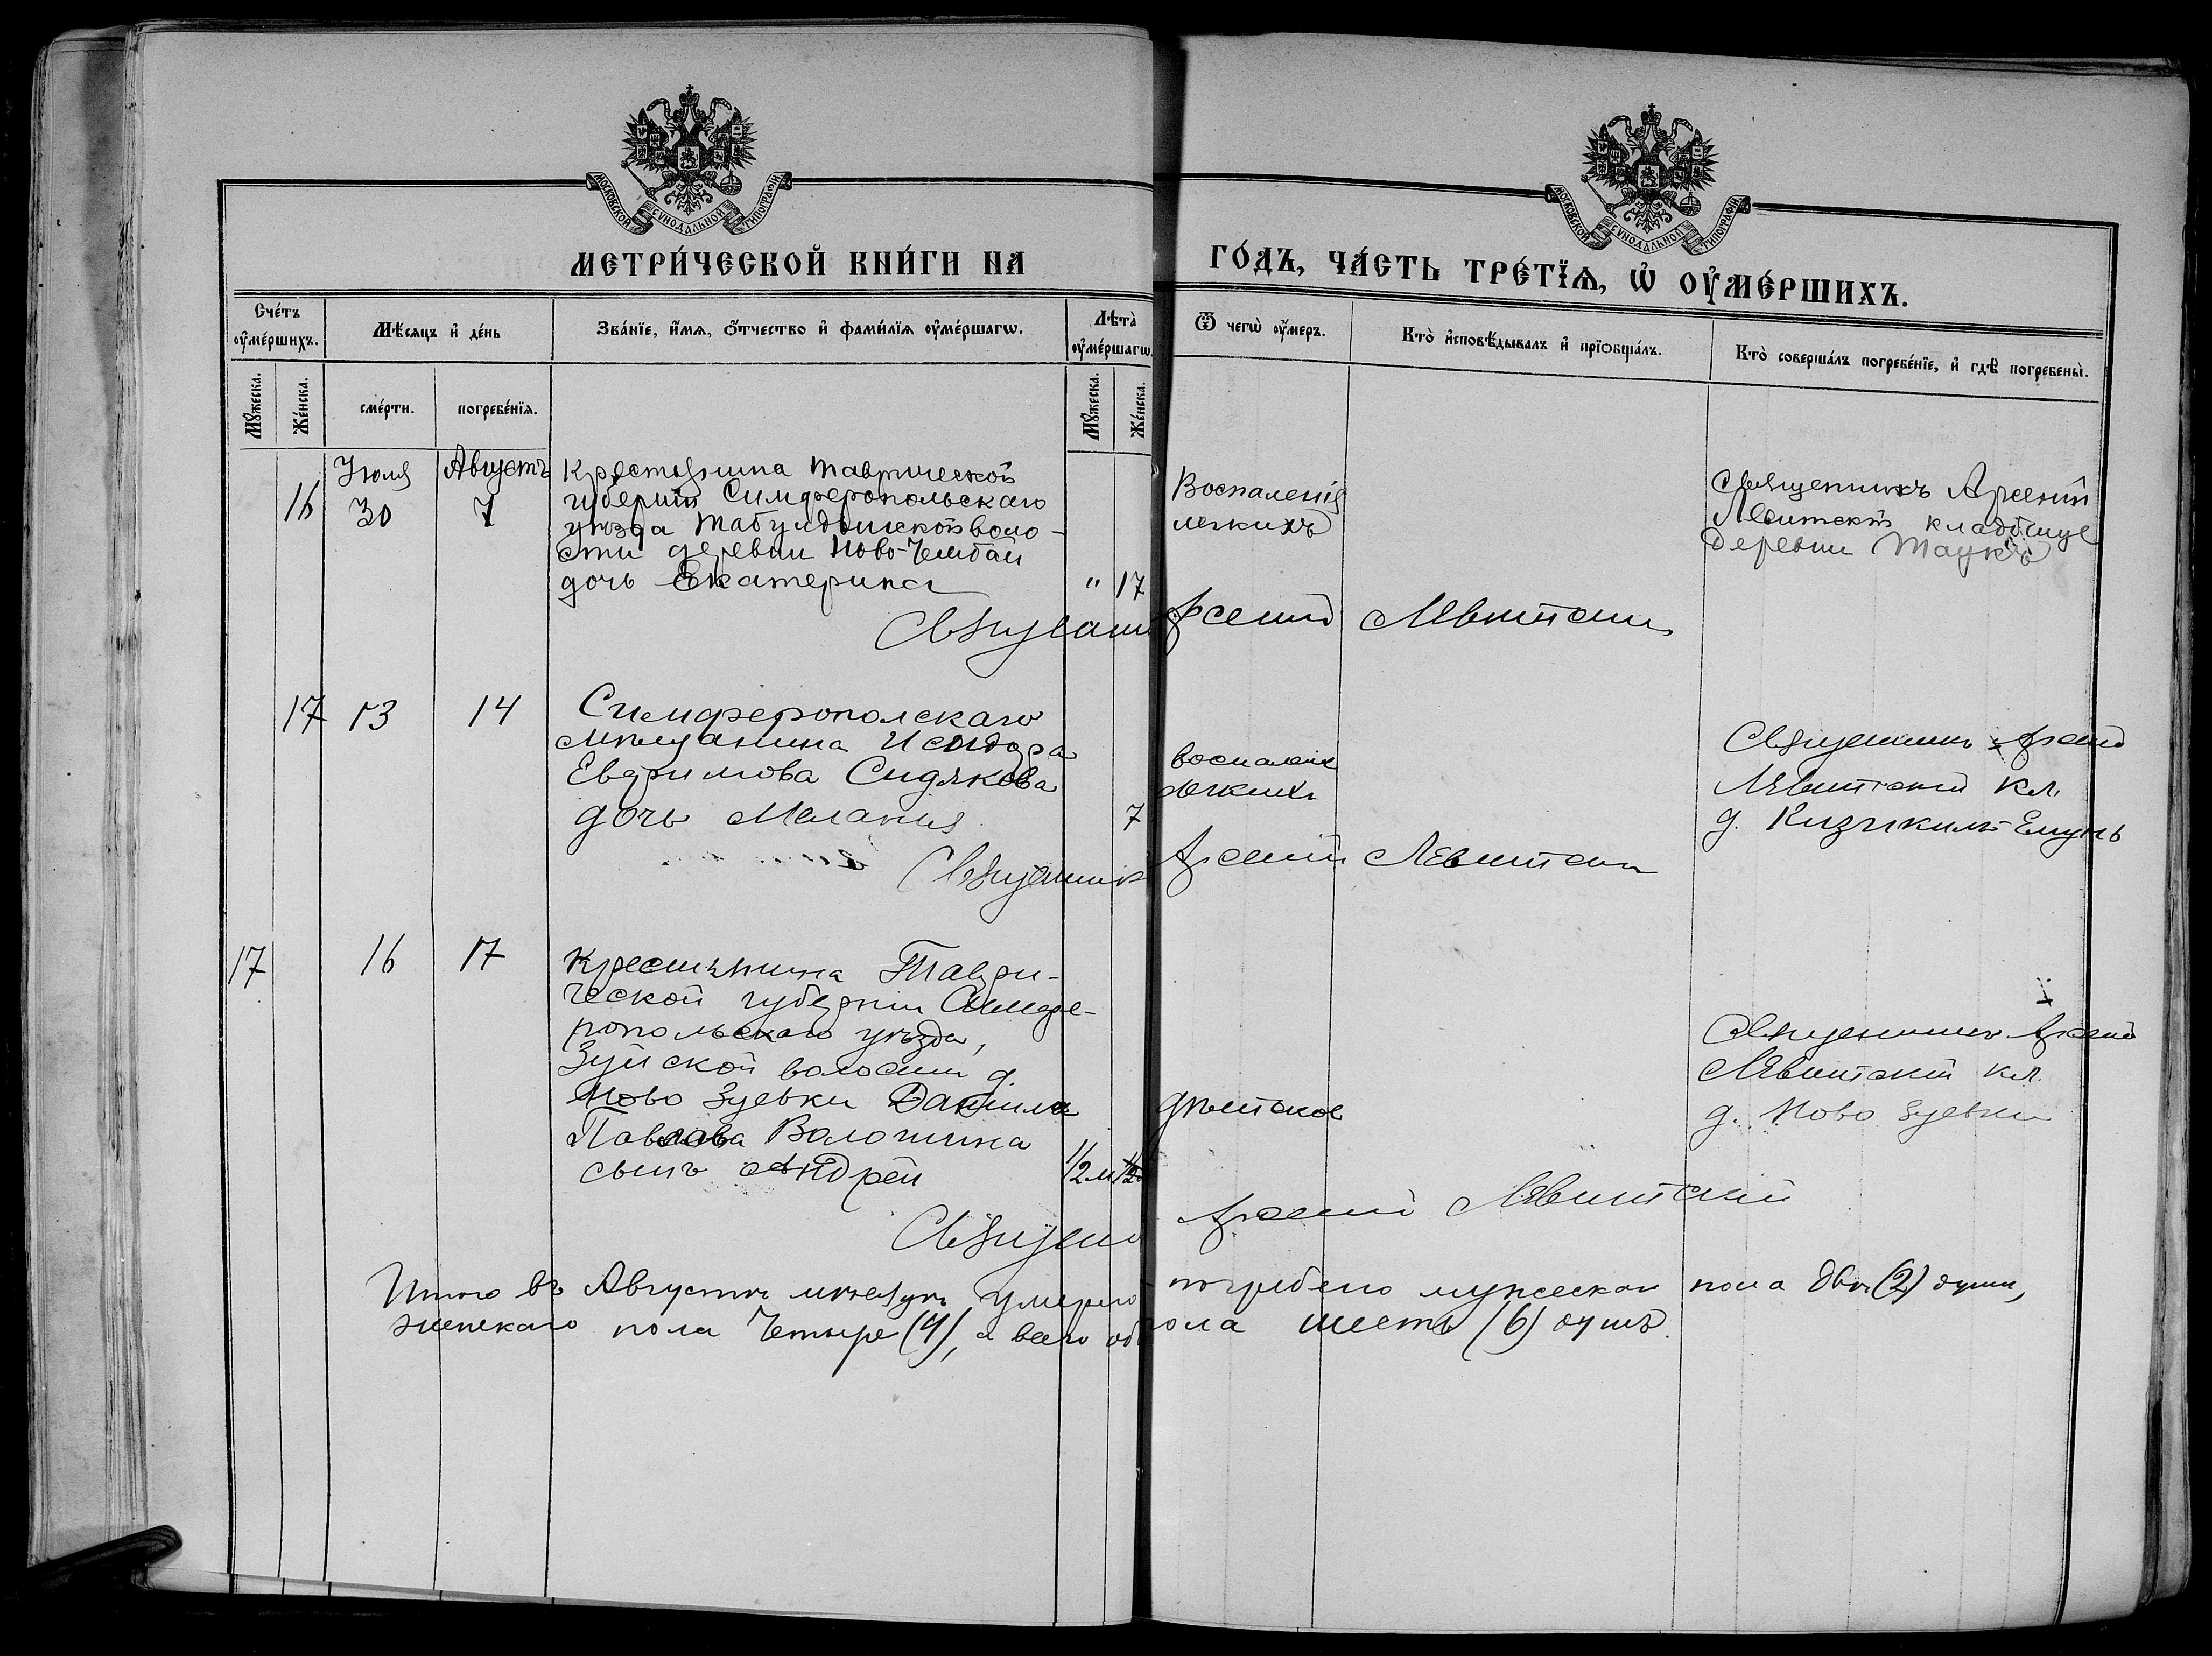 МОСКОВСКОЙ СУНОДАЛЬНОЙ ТИПОГРАФІИ
МОСКОВСКОЙ СУНОДАЛЬНОЙ ТИПОГРАФІИ
МЕТРИ́ЧЕСКОЙ КНИ́ГИ НА
ГО́ДЪ, ЧА́СТЬ ТРЕ́ТЇѦ, Ѡ҆ ОУ҆МЕ́РШИХЪ.
Сче́тъ оу҆ме́ршихъ.
Мѣ́сяцъ и҆ де́нь
Зва́нїе, и҆́мѧ, ѻ҆́тчество и҆ фами́лїѧ оу҆ме́ршагѡ.
Лѣта̀ оу҆ме́ршагѡ.
Ѿ чегѡ̀ оу҆́меръ.
Кто̀ и҆сповѣ́дывалъ и҆ прїѻбща́лъ.
Кто̀ соверша́лъ погребе́нїе, и҆ гдѣ̀ погребены̀.
Мꙋ́жеска.
Же́нска.
сме́рти.
погребе́нїѧ.
Мꙋ́жеска.
Же́нска.
Іюля Августъ
16 30 7
Крестьянина Таврической
губерніи Симферопольскаго
уѣзда Табулдинской воло-
сти деревни Ново-Чембай
дочь Екатерина
" 17
Воспаленія
легкихъ
Священникъ Арсеній
Левитскій кладбище
деревни Таукъ
Священник Арсеній Левитскій
17 13 14
Симферополскаго
мѣщанина Исидора
Евфимова Сидякова
дочь Меланія
7
воспаленіе
легкихъ
Священникъ Арсеній
Левитскій кл.
д.
Священник Арсеній Левитскій
17 16 17
Крестьянина Таври-
ческой губерніи Симфе-
ропольскаго уѣзда,
Зуйской волости д.
Ново Зуевки Даниила
Павлова Волошина
сынъ Андрей
1/2 м
дѣтское
Священникъ Арсеній
Левитскій кл.
д. Ново Зуевки
Священ Арсеній Левитскій
Итого въ Августѣ мѣсяцѣ умерло погребено мужескаго пола двѣ (2) души,
женскаго пола четыре (4), а всего об пола шесть (6) душъ.